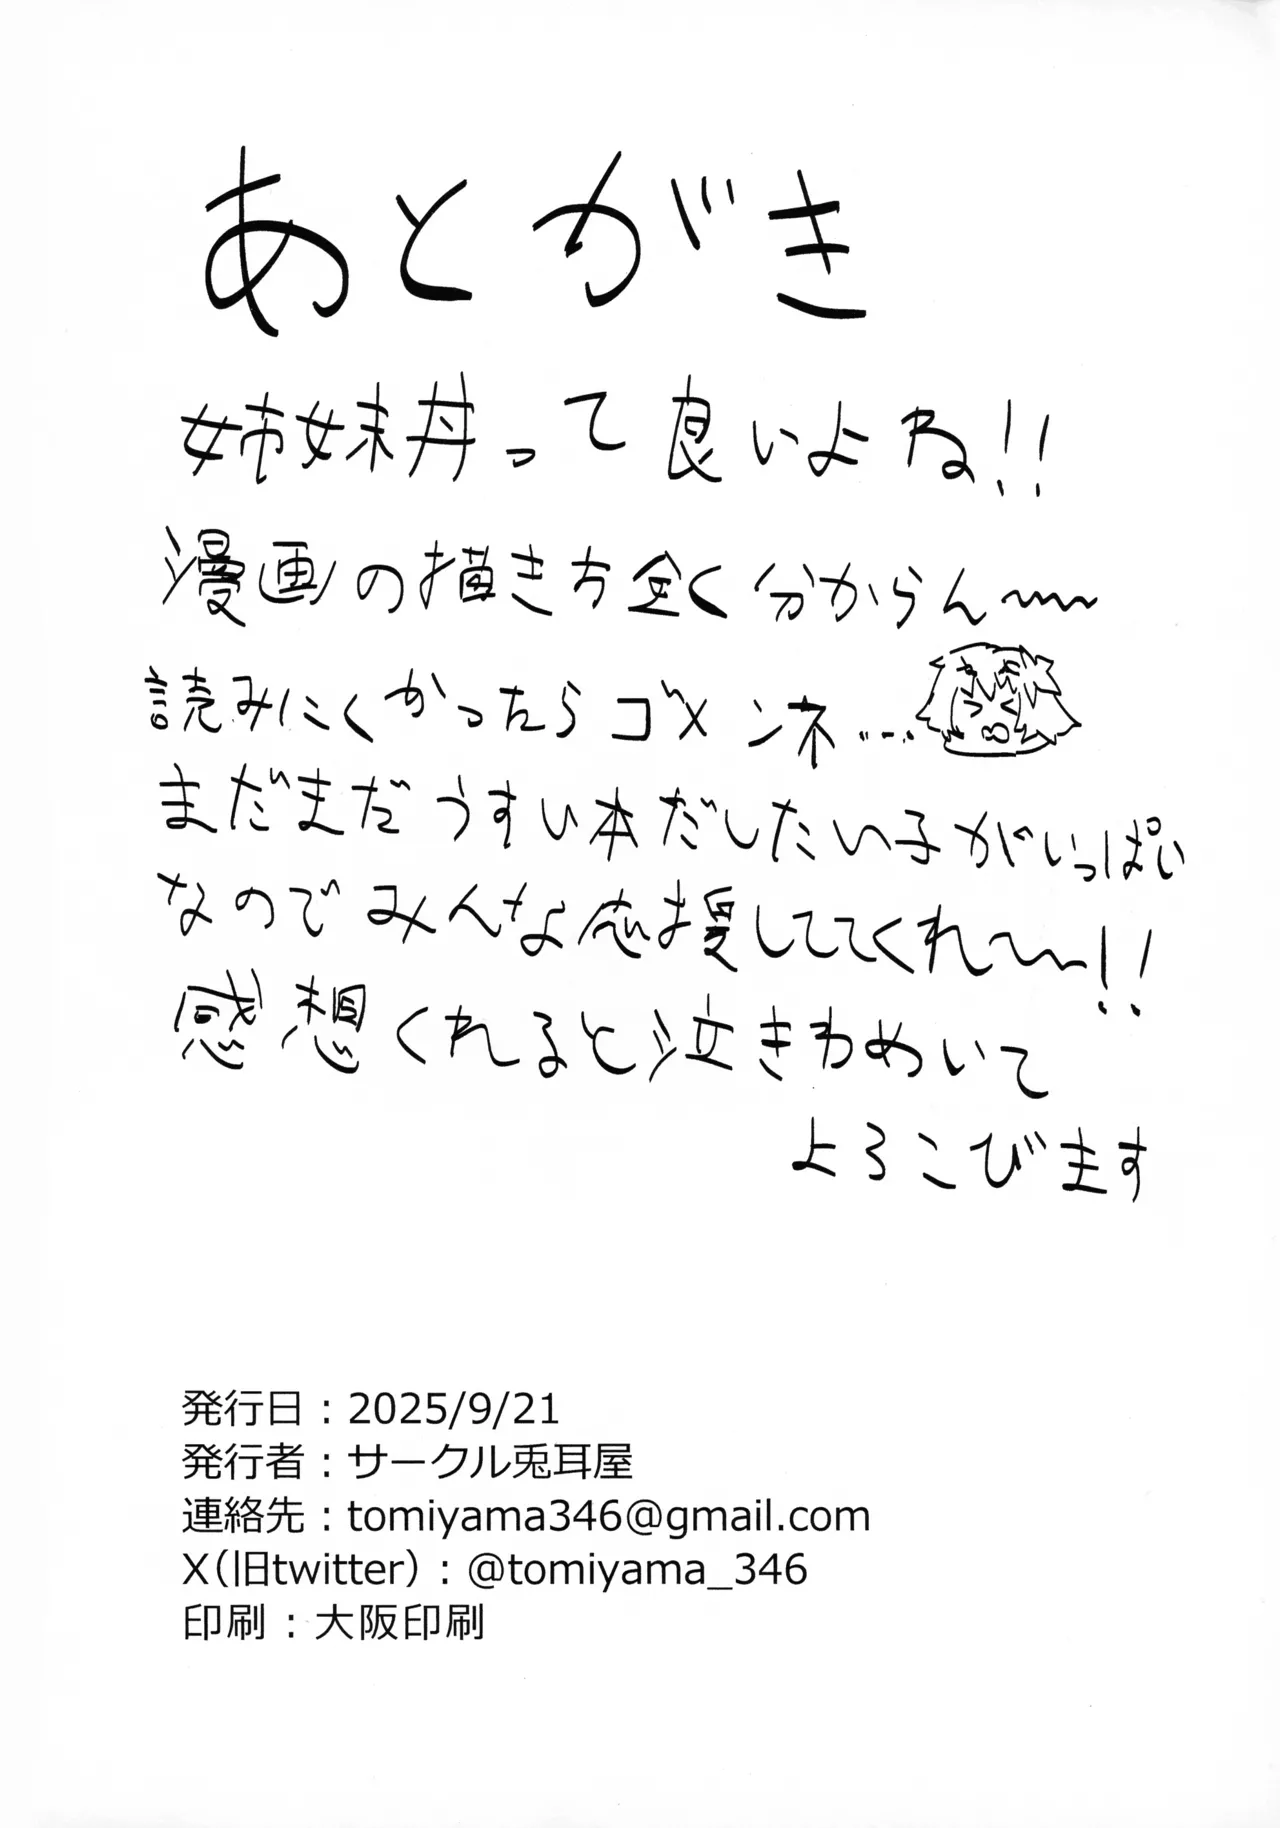 あとがき
姉妹丼って良いよね!!
漫画の描き方全く分からん〜〜
読みにくかったらゴメンネ……
まだまだうすい本だしたい子がいっぱい
なのでみんな応援しててくれ〜〜!!
感想くれると泣きわめいて
よろこびます
発行日：2025/9/21
発行者：サークル兎耳屋
連絡先：tomiyama346@gmail.com
X(旧twitter)：@tomiyama_346
印刷：大阪印刷